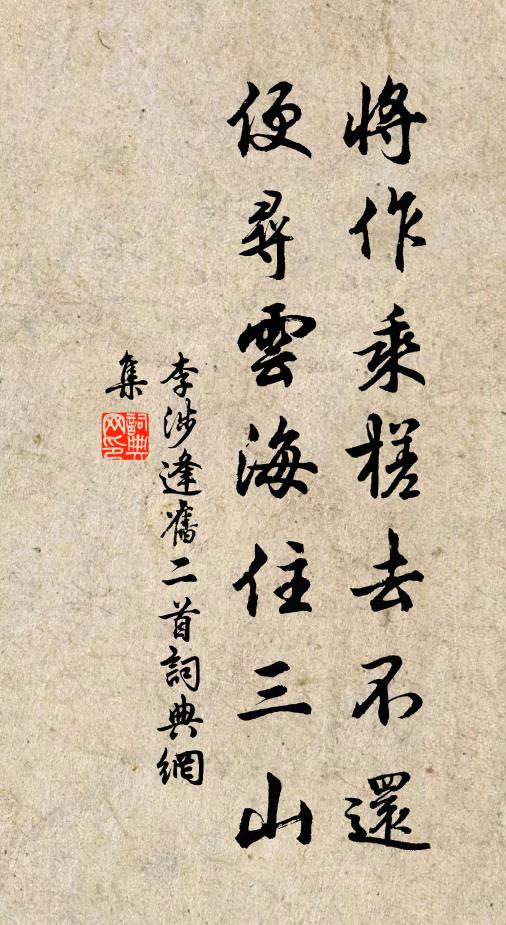 將作乘槎去不還
便尋雲海住三山
李涉逢舊二首詞典網
集
詞典
网印